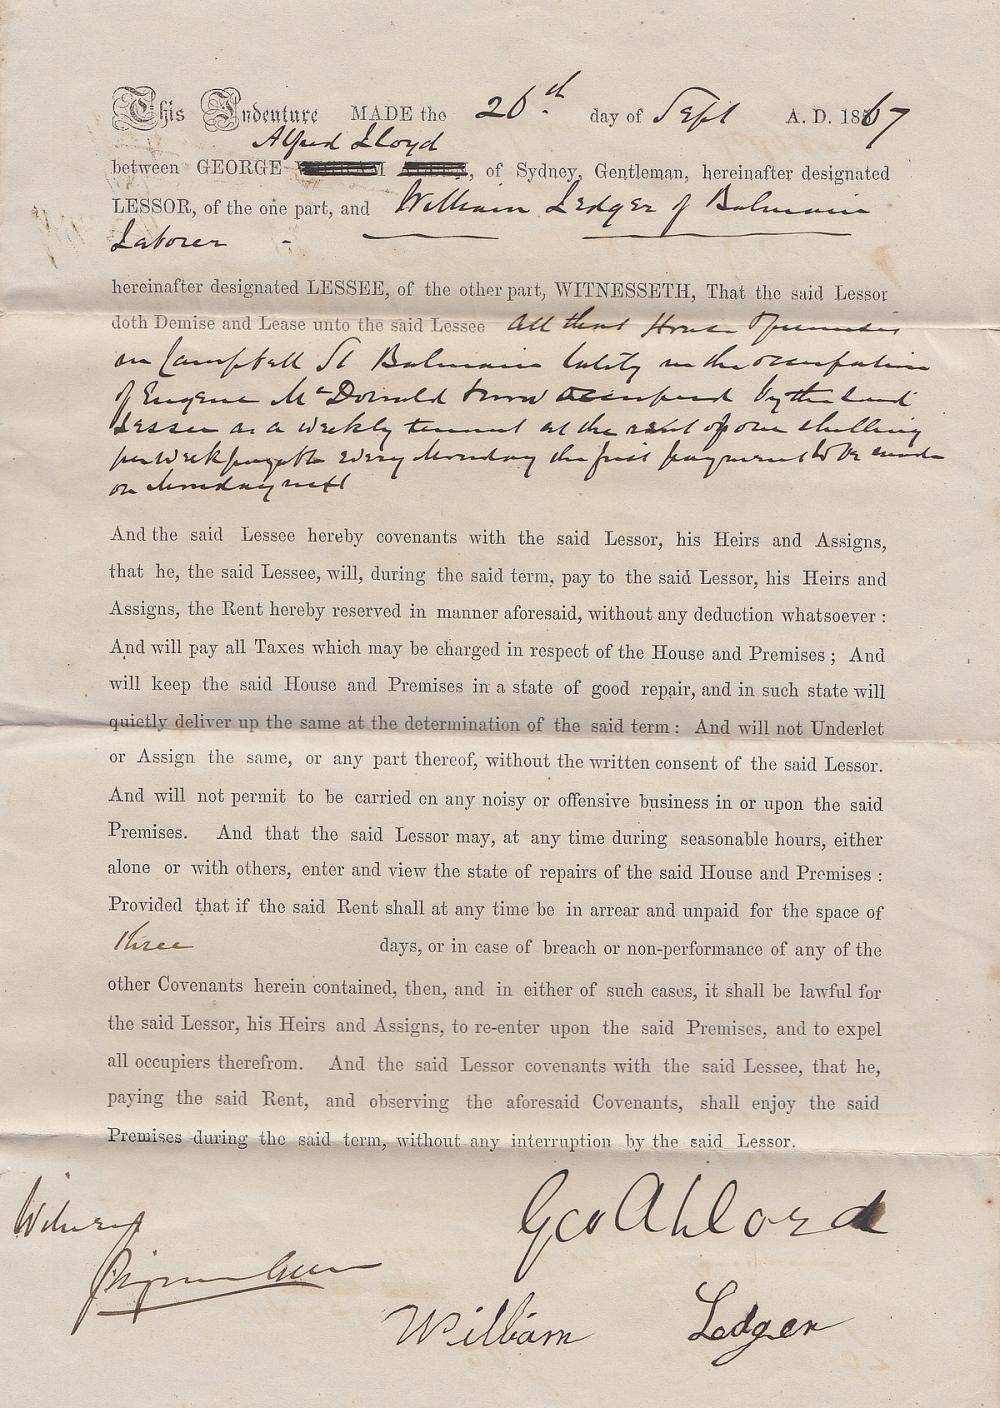 This Indenture MADE the 26th day of Sept A. D. 1867
Alfred Lloyd
between GEORGE , of Sydney, Gentleman, hereinafter designated
LESSOR, of the one part, and William Ledger of Balmain
Laborer -
hereinafter designated LESSEE, of the other part, WITNESSETH, That the said Lessor
doth Demise and Lease unto the said Lessee All that House & premises
in Campbell St Balmain lately in the occupation
of Eugene McDonald & now occupied by the said
Lessee as a weekly tenant at the rent of one shilling
per week payable every Monday the first payment to be made
on Monday next
And the said Lessee hereby covenants with the said Lessor, his Heirs and Assigns,
that he, the said Lessee, will, during the said term, pay to the said Lessor, his Heirs and
Assigns, the Rent hereby reserved in manner aforesaid, without any deduction whatsoever :
And will pay all Taxes which may be charged in respect of the House and Premises ; And
will keep the said House and Premises in a state of good repair, and in such state will
quietly deliver up the same at the determination of the said term : And will not Underlet
or Assign the same, or any part thereof, without the written consent of the said Lessor.
And will not permit to be carried on any noisy or offensive business in or upon the said
Premises. And that the said Lessor may, at any time during seasonable hours, either
alone or with others, enter and view the state of repairs of the said House and Premises :
Provided that if the said Rent shall at any time be in arrear and unpaid for the space of
three days, or in case of breach or non-performance of any of the
other Covenants herein contained, then, and in either of such cases, it shall be lawful for
the said Lessor, his Heirs and Assigns, to re-enter upon the said Premises, and to expel
all occupiers therefrom. And the said Lessor covenants with the said Lessee, that he,
paying the said Rent, and observing the aforesaid Covenants, shall enjoy the said
Premises during the said term, without any interruption by the said Lessor.
Witness Geo A Lloyd
William Ledger